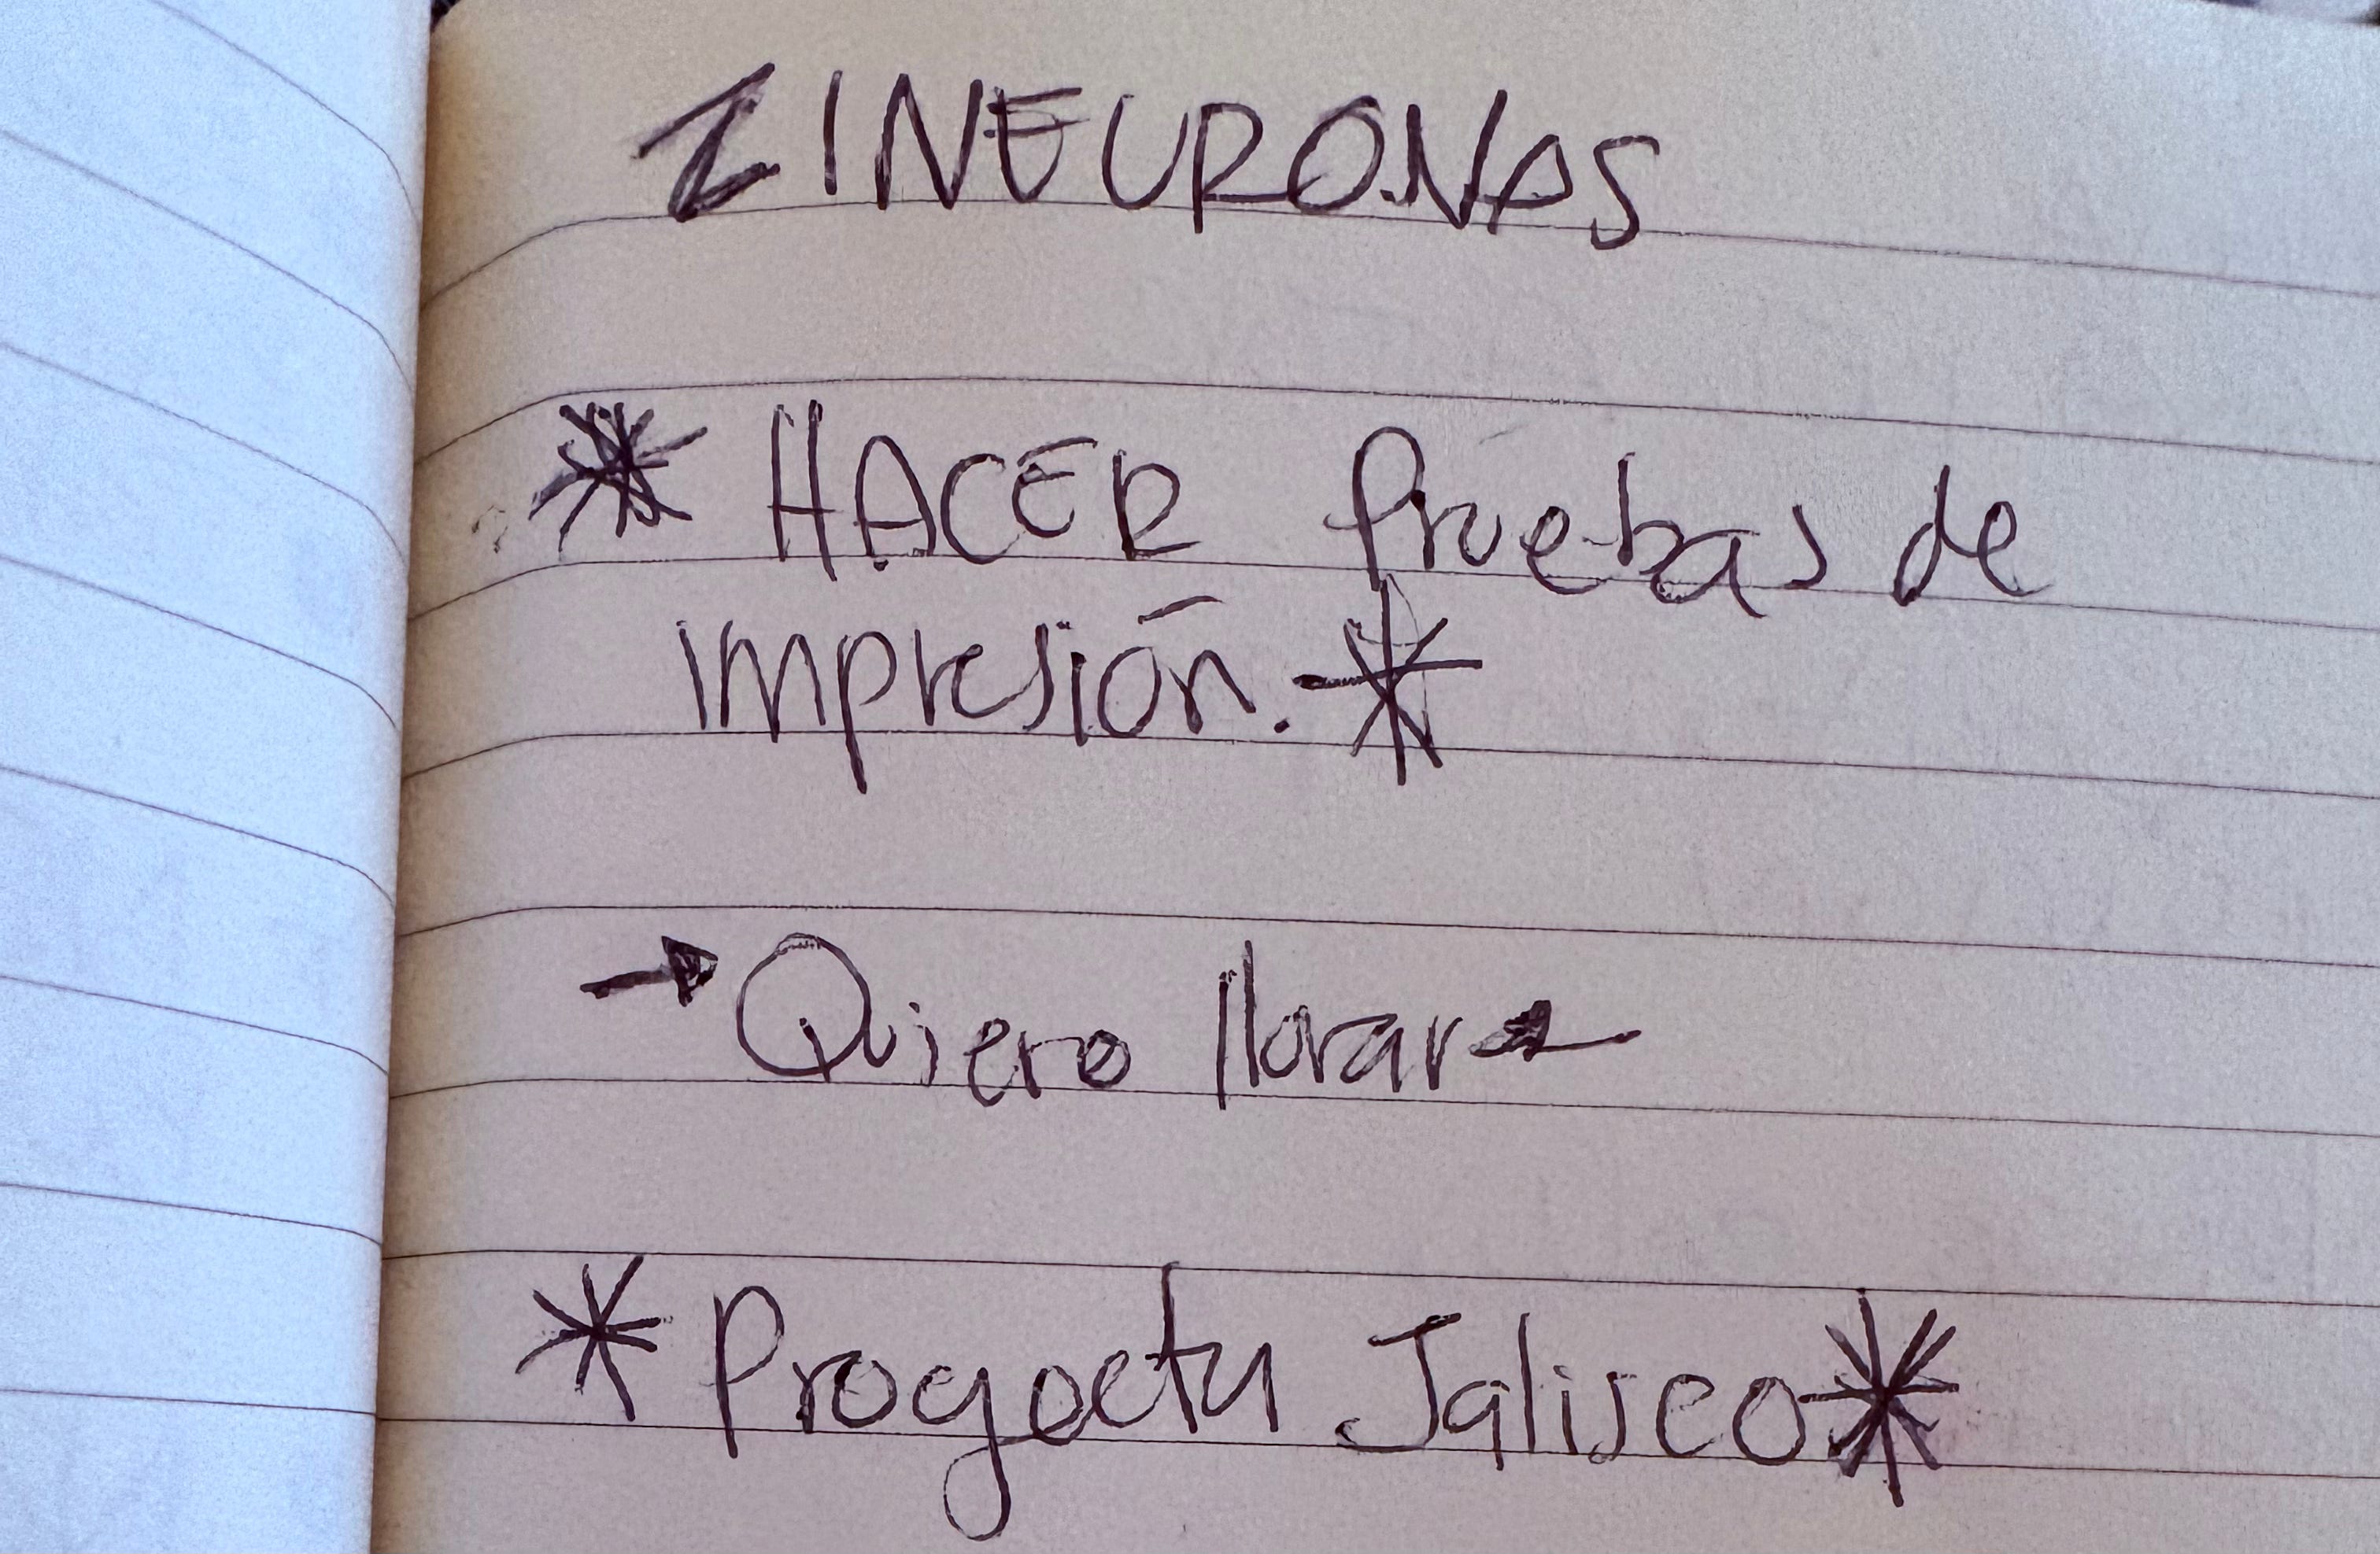 ZINEURONAS
* HACER Pruebas de
impresión. *
→ Quiero llorar ←
* Proyecta Jalisco *